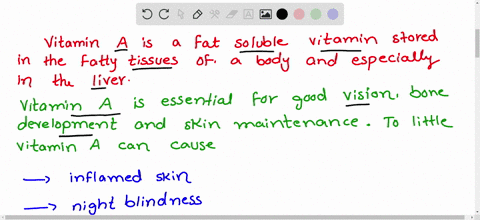 Vitamin A is a fat soluble vitamin stored
in the fatty tissues of a body and especially
in the liver.
Vitamin A is essential for good vision, bone
development and skin maintenance. To little
vitamin A can cause
→ inflamed skin
→ night blindness